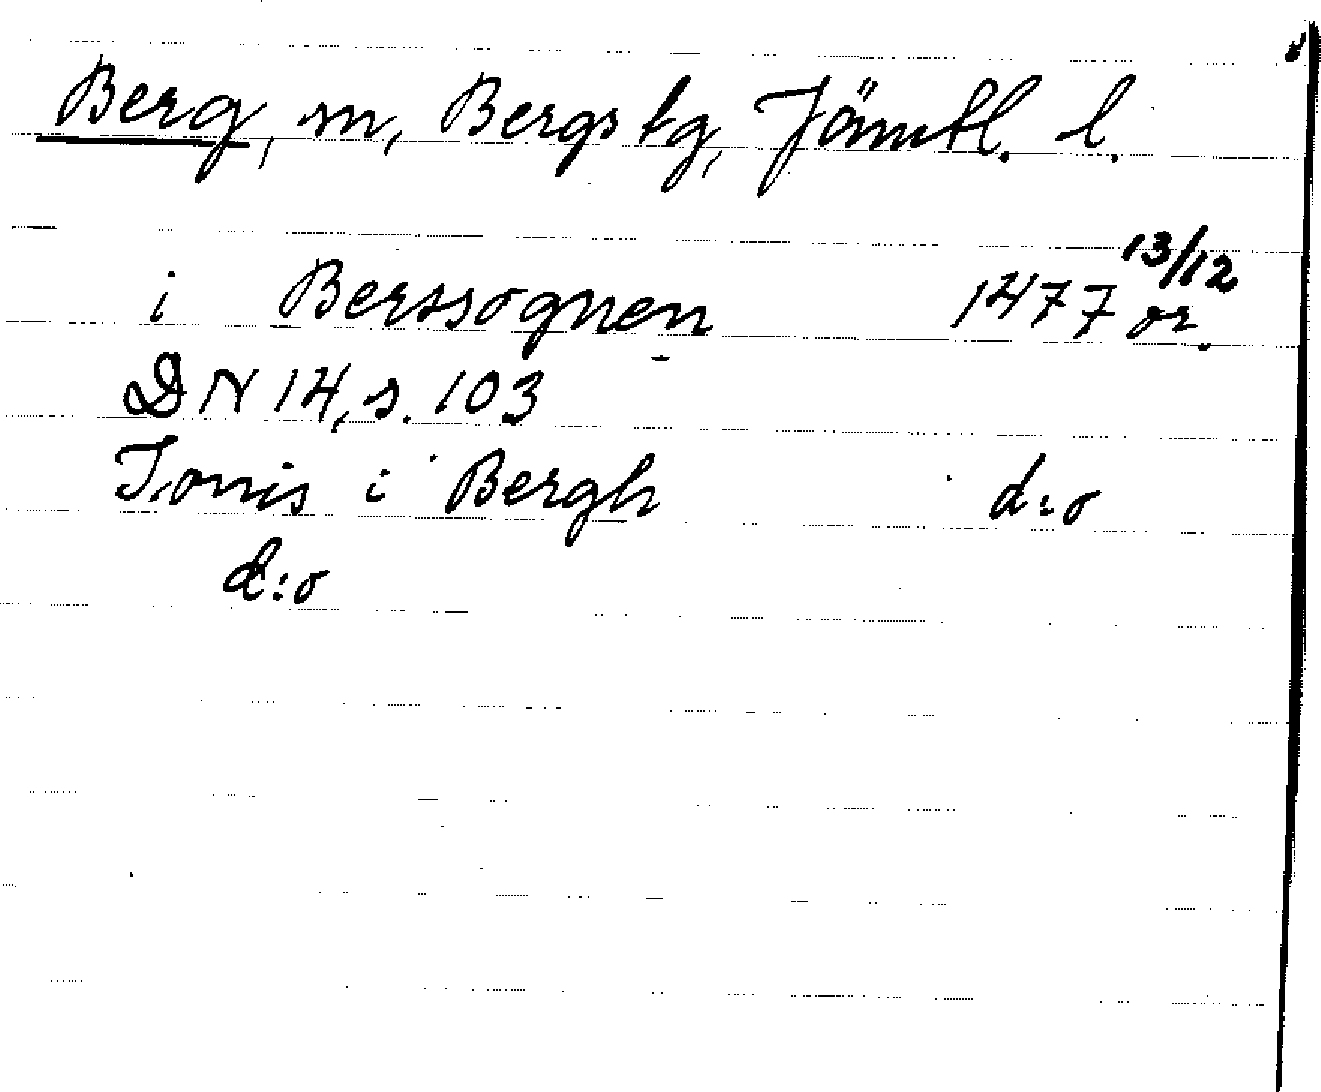 Berg, sn, Bergs tg, Jämtl. l.
i Berssognen 1477 13/12 or.
DN 14, s. 103
Jonis i Bergh d:o
d:o